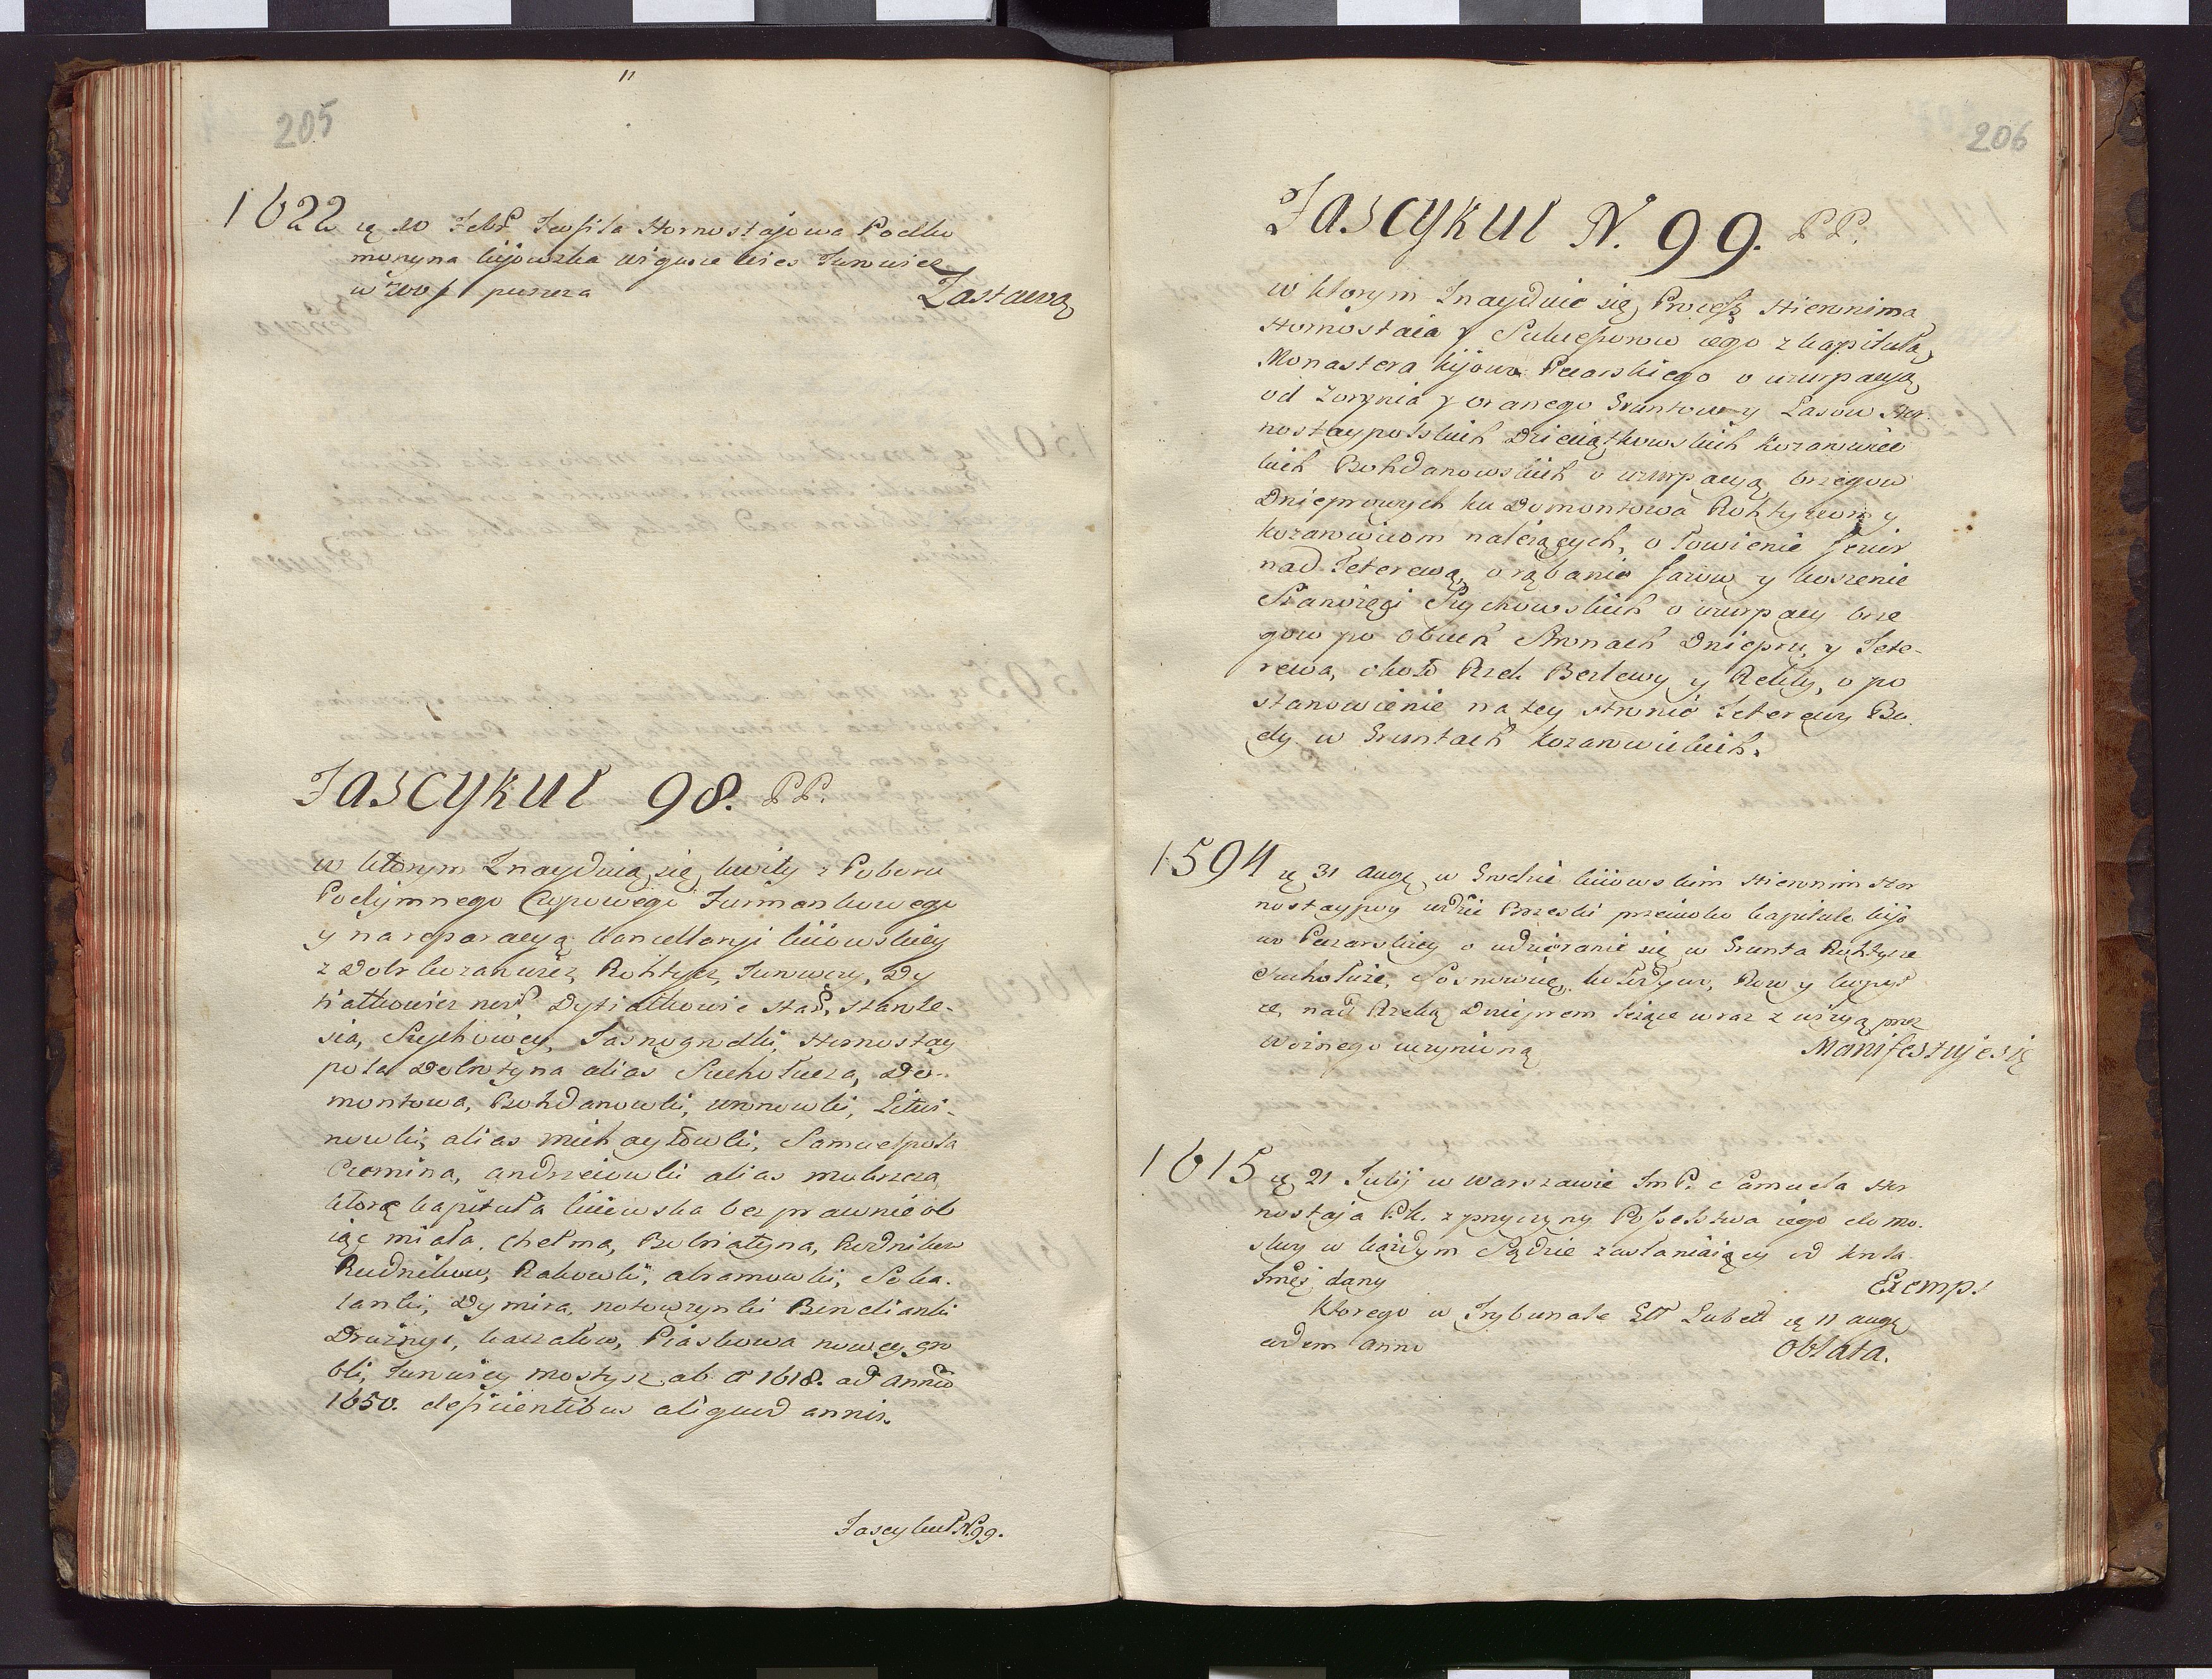 205
1622 ą 20 Febr Teofila Hornostajowa Podko
morzyna kijowska wieś Kunwicz
w 700 f puszcza Zastawą
Fascykuł 98. PP.
w ktorym Znayduią się kwity z Poboru
Podymnego Czopowego Furmankowego
y na reparacyą kancellaryi kiiowskiey
z Dobr Kozarowicz, Rohtycz, Dy
tiatkowicz now Dytiatkowic star, Stawle-
sia, Sychowey, Jasnogrodki, Hornostay
pola Dobrotyna alias Sucholucza, Do-
montowa, Bohdanowki, Woronowki, Litwi-
nowki, alias Michayłowki, Samuelpola
Czemina, Andrzeiowki alias Mokrzcza,
ktorą kapituła kiiowska bezprawnie ob
iąć miała, Chełma, Bobriatyna, Rudnikow
Rudnikow, Rakowki, Abramowki, Soka-
lanki, Dymira,
Piaskowa nowey gro
bli, mostyszcz ab A 1618. ad Annum
1650. deficientibus aliquod annis.
Fascykuł N. 99.
206
Fascykuł N. 99. PP.
w ktorym Znayduie się Process Hieronima
Hornostaia y Sukcessorow iego z kapitułą
Monastera kijowo Pieczarskiego o uzurpacyą
od Zorynia y oranego Gruntow y Lasow Hor
nostaypolskich Dzieciątkowskich Kozarowiec
kich Bohdanowskich o uzurpacyą brzegow
Dnieprowych ku Domontowa Rohtyczom y
Kozarowicom należących, o łowienie Jezior
nad Teterewą, o rąbanie lasow y koszenie
Sianożęci Sychowskich o uzurpacy brze
gow po obuch Stronach Dniepru, y Tete-
rewa, około Rzek Berlewy y Retki, o po
stanowienie na tey stronie Teterewy Bu
dy w Gruntach Kozarowickich.
1594 ą 31 Aug w Grodzie kiiowskim Hieronim Hor
nostaypoy Brzeski przeciwko kapitule kijo
wo Pieczarskiey o udzieranie się w Grunta Rohtycze
Sucholuże, Sosnowicę,
nad Rzeką Dnieprem leżące wraz z wizyą przez
Woźnego uczynioną Manifestuje się
1615 ą 21 Julij w Warszawie Im P. Samuela Hor
nostaja P.K. z przyczyny Posselstwa iego do Mo-
skwy w każdym Sądzie zasłaniaiący od Krola
Imci dany Exempt
Ktorego w Trybunale Gł Lubelt ą 11 aug
eodem Anno Oblata.